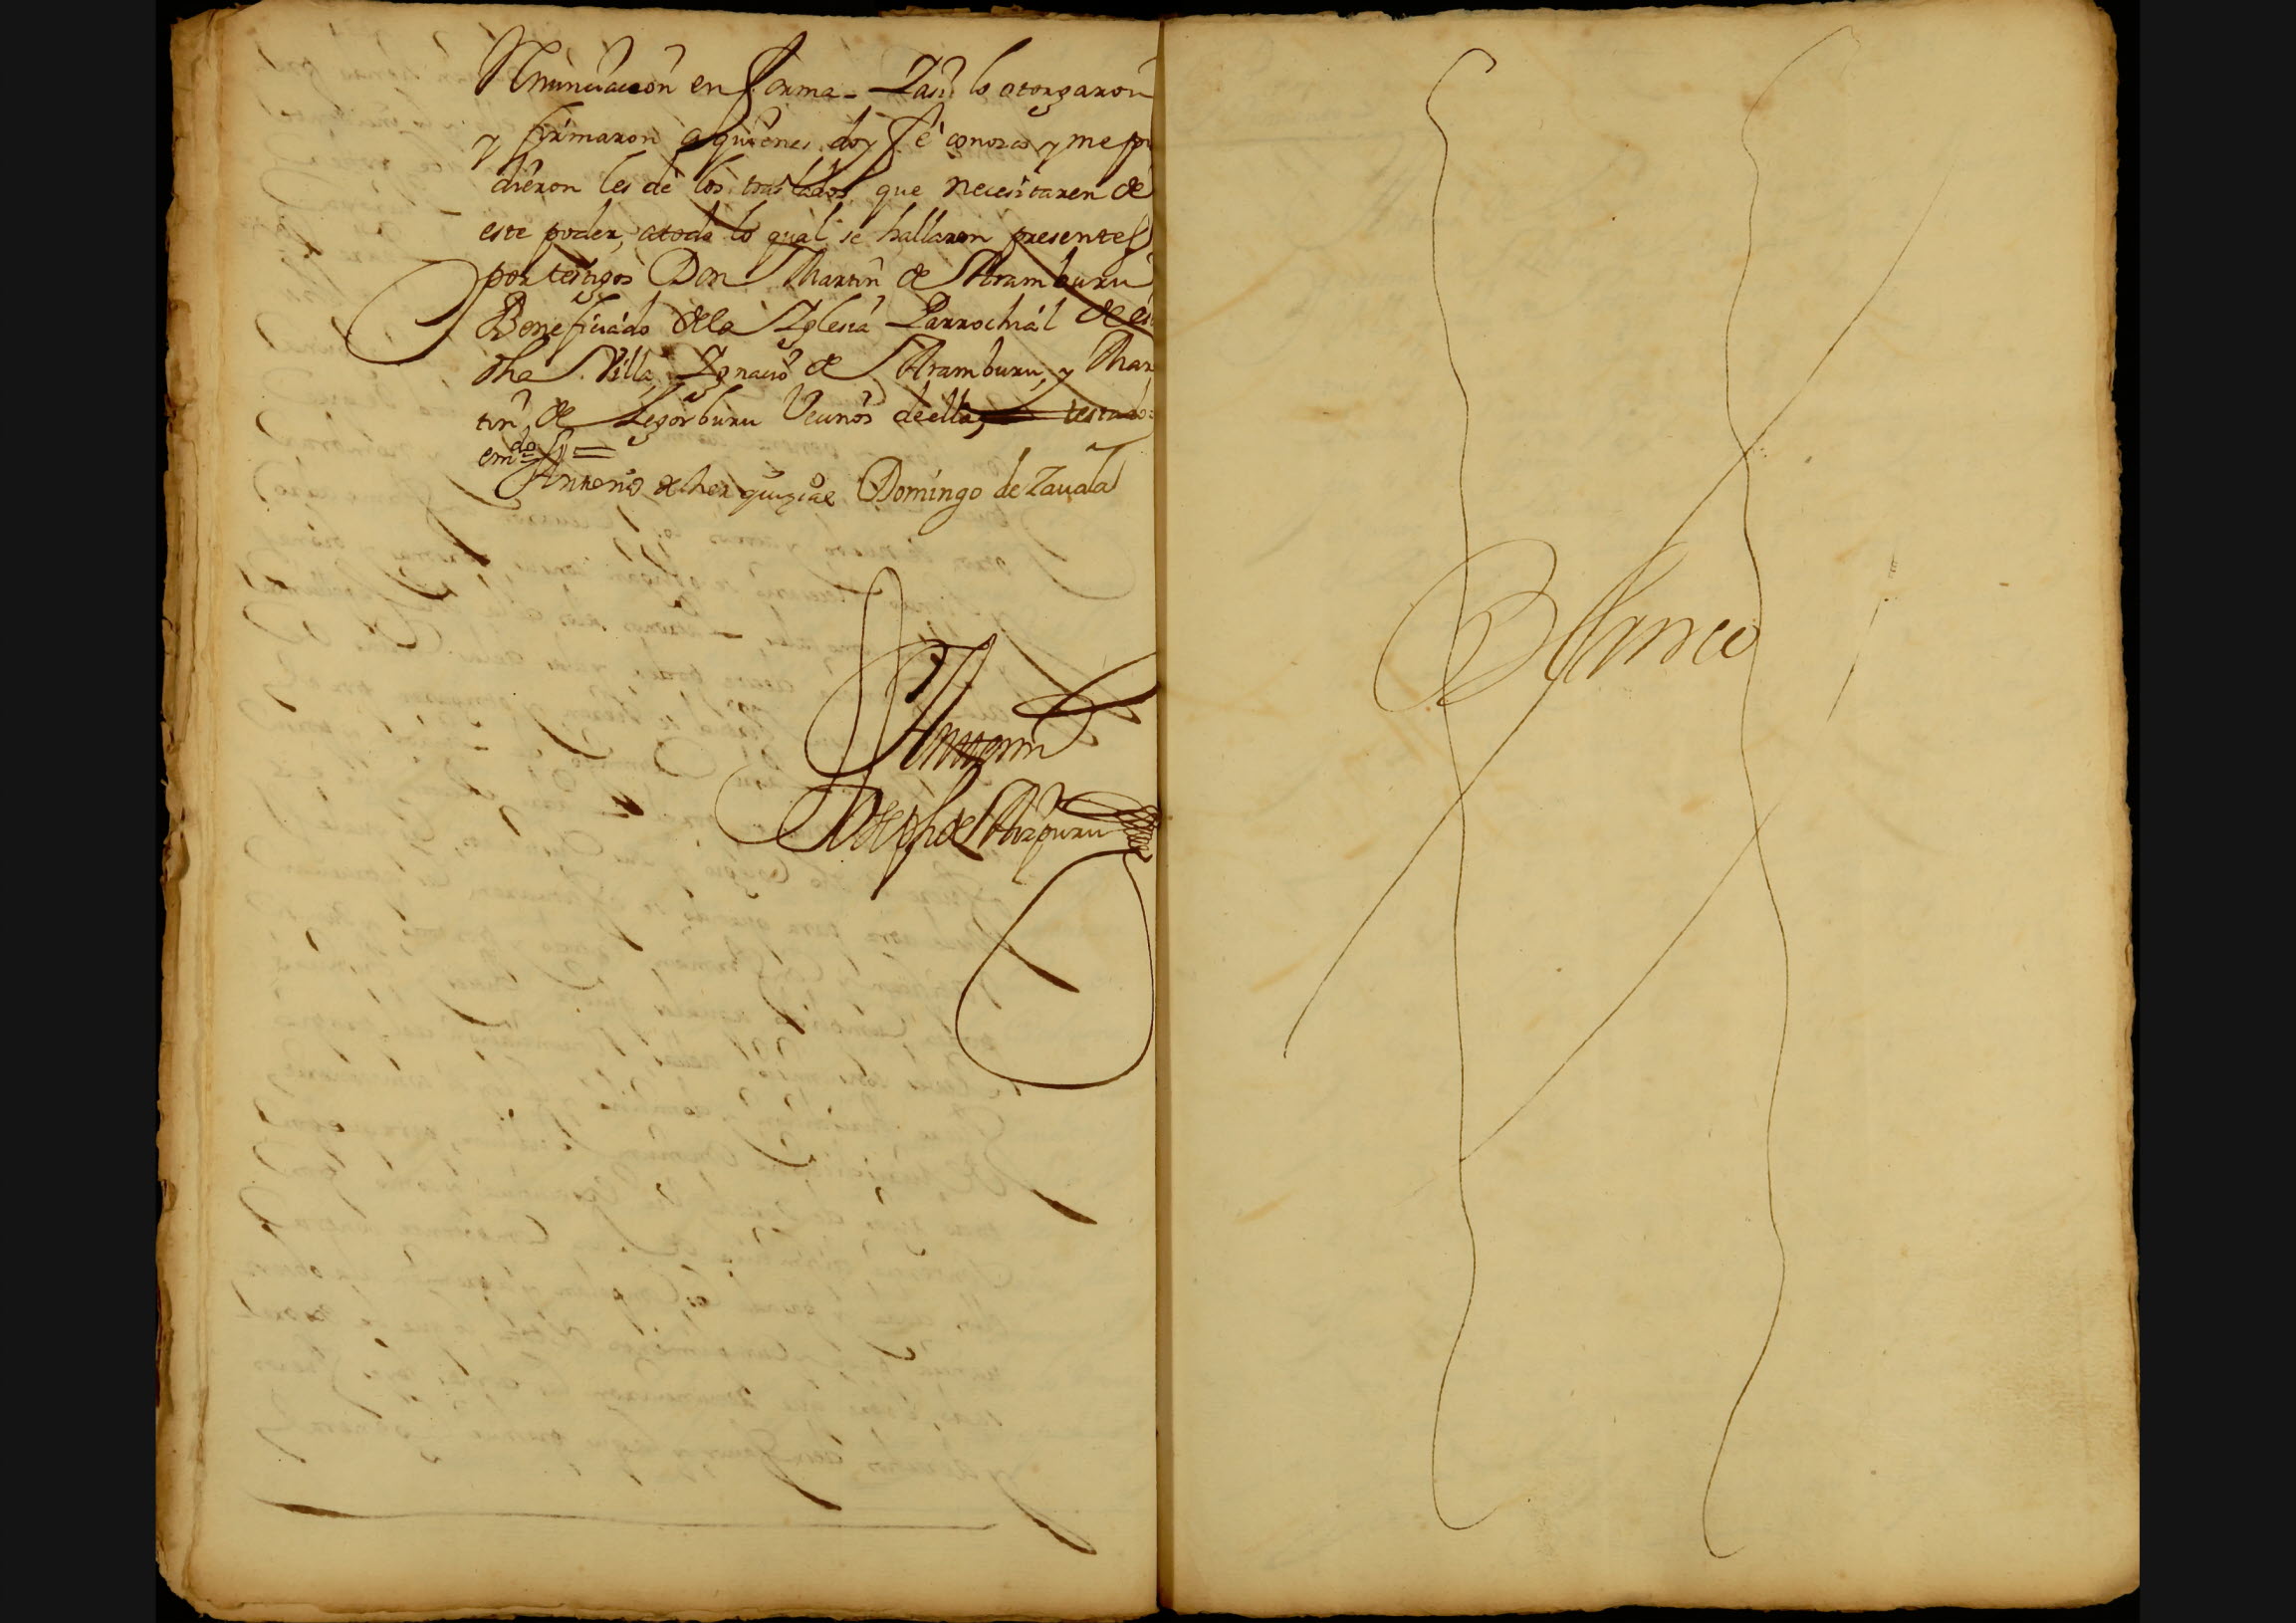 Renunciacion en forma - Y asi lo otorgaron
y firmaron a quienes doy fé conozco y me pi
dieron les dé los traslados que necesitaren de
este poder, a todo lo qual se hallaron presentes
por testigos Don Martin de Aramburu
Beneficiado dela Yglesia Parrochial de es
dha Villa, Ygnacio de Aramburu, y Mar
tin de Legorburu Vecinos de ella, testado
emdo
Antonio de Domingo de Zauala
Ante mi
Joseph de Aizpuru
Blanco